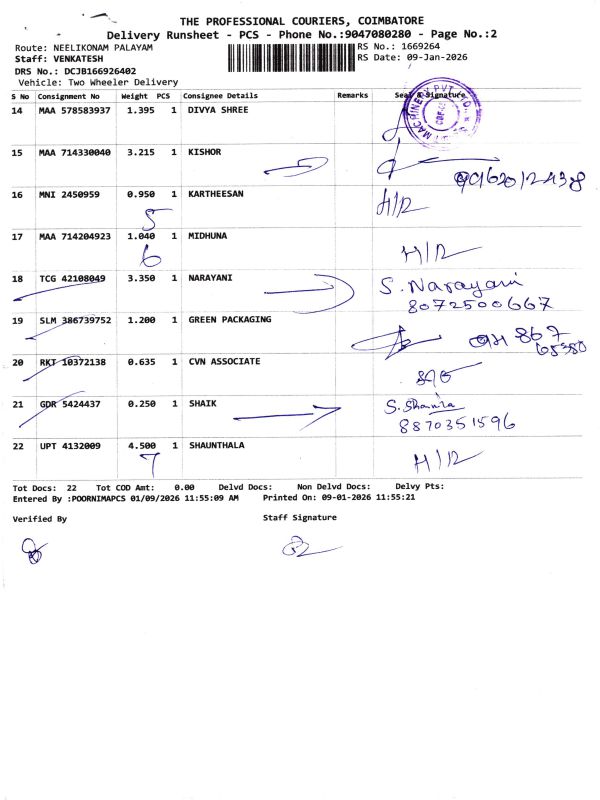 THE PROFESSIONAL COURIERS, COIMBATORE
Delivery Runsheet - PCS - Phone No.:9047080280 - Page No.:2
Route: NEELIKONAM PALAYAM RS No.: 1669264
Staff: VENKATESH RS Date: 09-Jan-2026
DRS No.: DCJB166926402
Vehicle: Two Wheeler Delivery
S No Consignment No Weight PCS Consignee Details Remarks Seal & Signature
14 MAA 578583937 1.395 1 DIVYA SHREE
15 MAA 714330040 3.215 1 KISHOR
16 MNI 2450959 0.950 1 KARTHEESAN H/R
5
17 MAA 714204923 1.040 1 MIDHUNA H/R
6
18 TCG 42108049 3.350 1 NARAYANI S. Narayani
8072500667
19 SLM 386739752 1.200 1 GREEN PACKAGING
20 RKT 10372138 0.635 1 CVN ASSOCIATE
21 GDR 5424437 0.250 1 SHAIK S. Shamla
8870351596
22 UPT 4132009 4.500 1 SHAUNTHALA H/R
7
Tot Docs: 22 Tot COD Amt: 0.00 Delvd Docs: Non Delvd Docs: Delvy Pts:
Entered By :POORNIMAPCS 01/09/2026 11:55:09 AM Printed On: 09-01-2026 11:55:21
Verified By Staff Signature